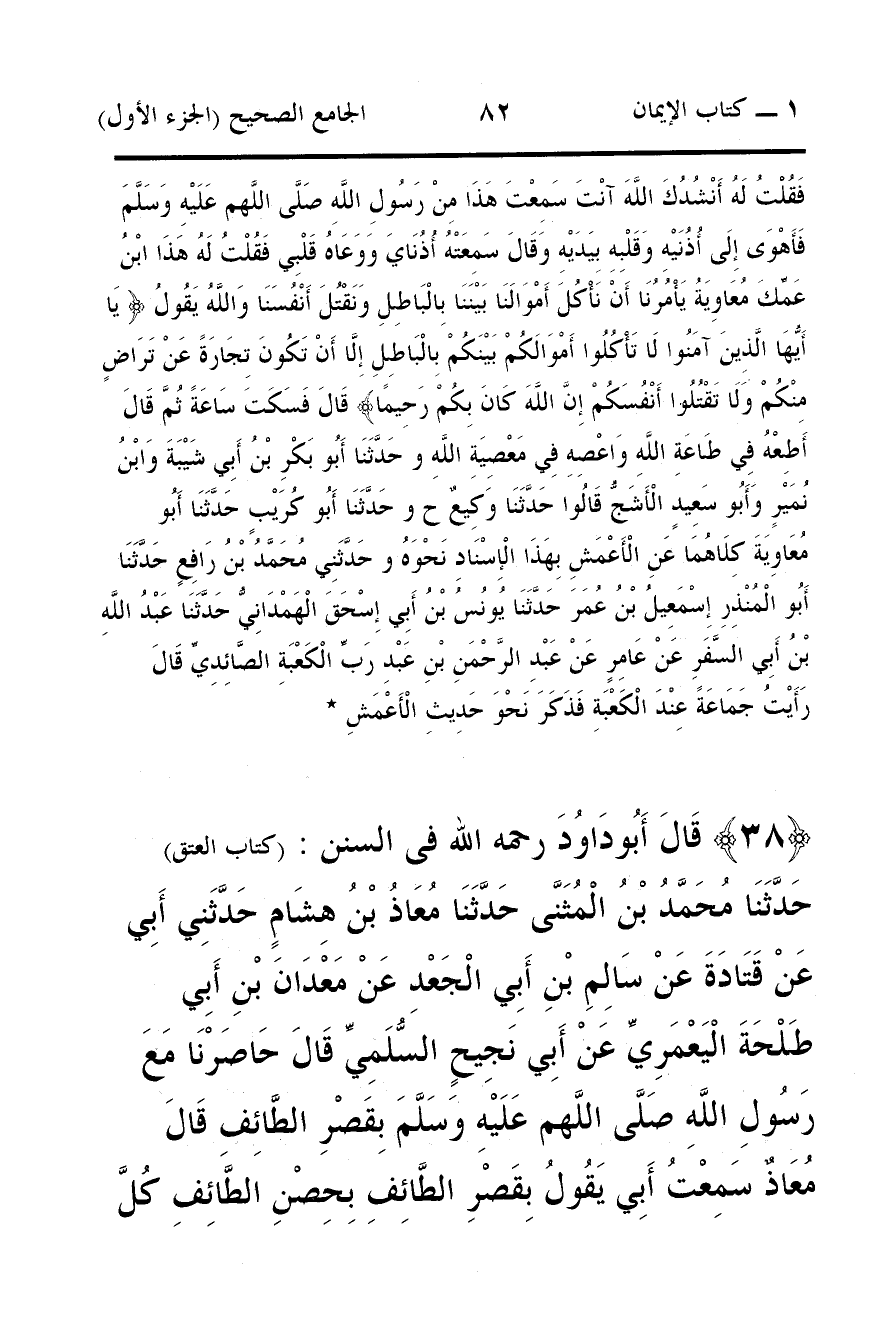 ١ ــ كتاب الإيمان ٨٢ الجامع الصحيح (الجزء الأول)
فَقُلْتُ لَهُ أَنْشُدُكَ اللَّهَ آنْتَ سَمِعْتَ هَذَا مِنْ رَسُولِ اللَّهِ صَلَّى اللَّهم عَلَيْهِ وَسَلَّمَ
فَأَهْوَى إِلَى أُذُنَيْهِ وَقَلْبِهِ بِيَدَيْهِ وَقَالَ سَمِعَتْهُ أُذُنَايَ وَوَعَاهُ قَلْبِي فَقُلْتُ لَهُ هَذَا ابْنُ
عَمِّكَ مُعَاوِيَةُ يَأْمُرُنَا أَنْ نَأْكُلَ أَمْوَالَنَا بَيْنَنَا بِالْبَاطِلِ وَنَقْتُلَ أَنْفُسَنَا وَاللَّهُ يَقُولُ ﴿ يَا
أَيُّهَا الَّذِينَ آمَنُوا لَا تَأْكُلُوا أَمْوَالَكُمْ بَيْنَكُمْ بِالْبَاطِلِ إِلَّا أَنْ تَكُونَ تِجَارَةً عَنْ تَرَاضٍ
مِنْكُمْ وَلَا تَقْتُلُوا أَنْفُسَكُمْ إِنَّ اللَّهَ كَانَ بِكُمْ رَحِيمًا﴾ قَالَ فَسَكَتَ سَاعَةً ثُمَّ قَالَ
أَطِعْهُ فِي طَاعَةِ اللَّهِ وَاعْصِهِ فِي مَعْصِيَةِ اللَّهِ و حَدَّثَنَا أَبُو بَكْرِ بْنُ أَبِي شَيْبَةَ وَابْنُ
نُمَيْرٍ وَأَبُو سَعِيدٍ الْأَشَجُّ قَالُوا حَدَّثَنَا وَكِيعٌ ح و حَدَّثَنَا أَبُو كُرَيْبٍ حَدَّثَنَا أَبُو
مُعَاوِيَةَ كِلَاهُمَا عَنِ الْأَعْمَشِ بِهَذَا الْإِسْنَادِ نَحْوَهُ و حَدَّثَنِي مُحَمَّدُ بْنُ رَافِعٍ حَدَّثَنَا
أَبُو الْمُنْذِرِ إِسْمَعِيلُ بْنُ عُمَرَ حَدَّثَنَا يُونُسُ بْنُ أَبِي إِسْحَقَ الْهَمْدَانِيُّ حَدَّثَنَا عَبْدُ اللَّهِ
بْنُ أَبِي السَّفَرِ عَنْ عَامِرٍ عَنْ عَبْدِ الرَّحْمَنِ بْنِ عَبْدِ رَبِّ الْكَعْبَةِ الصَّائِدِيِّ قَالَ
رَأَيْتُ جَمَاعَةً عِنْدَ الْكَعْبَةِ فَذَكَرَ نَحْوَ حَدِيثِ الْأَعْمَشِ *
﴿٣٨﴾ قَالَ أَبُودَاوُدَ رحمه الله فى السنن : (كتاب العتق)
حَدَّثَنَا مُحَمَّدُ بْنُ الْمُثَنَّى حَدَّثَنَا مُعَاذُ بْنُ هِشَامٍ حَدَّثَنِي أَبِي
عَنْ قَتَادَةَ عَنْ سَالِمِ بْنِ أَبِي الْجَعْدِ عَنْ مَعْدَانَ بْنِ أَبِي
طَلْحَةَ الْيَعْمَرِيِّ عَنْ أَبِي نَجِيحٍ السُّلَمِيِّ قَالَ حَاصَرْنَا مَعَ
رَسُولِ اللَّهِ صَلَّى اللَّهم عَلَيْهِ وَسَلَّمَ بِقَصْرِ الطَّائِفِ قَالَ
مُعَاذٌ سَمِعْتُ أَبِي يَقُولُ بِقَصْرِ الطَّائِفِ بِحِصْنِ الطَّائِفِ كُلَّ